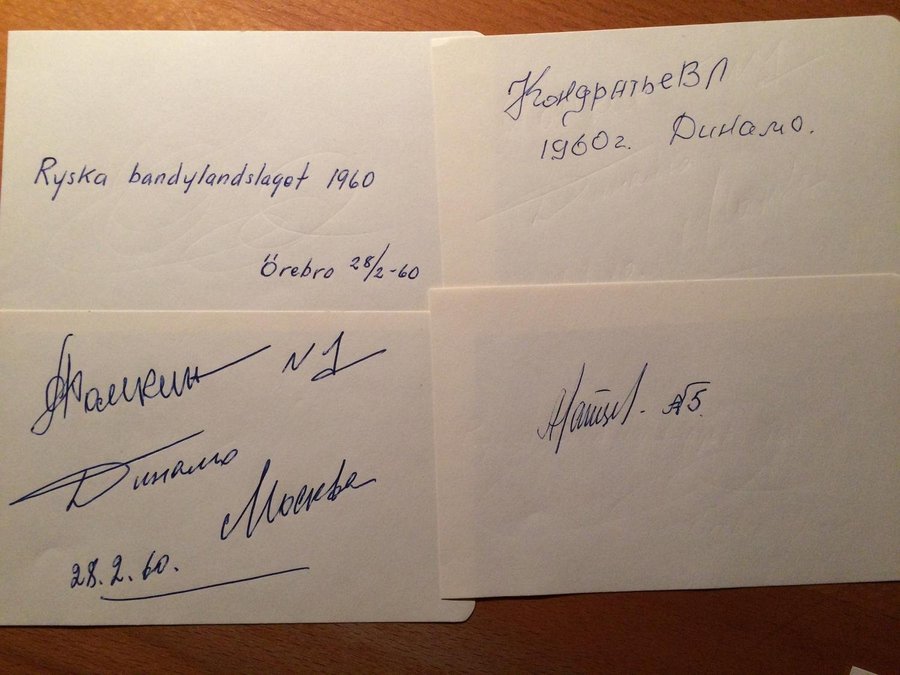 Ryska bandylandslaget 1960
Örebro 28/2-60
Кондратьев Л
1960г. Динамо.
N 1
Динамо
Москва
28.2.60.
№5.